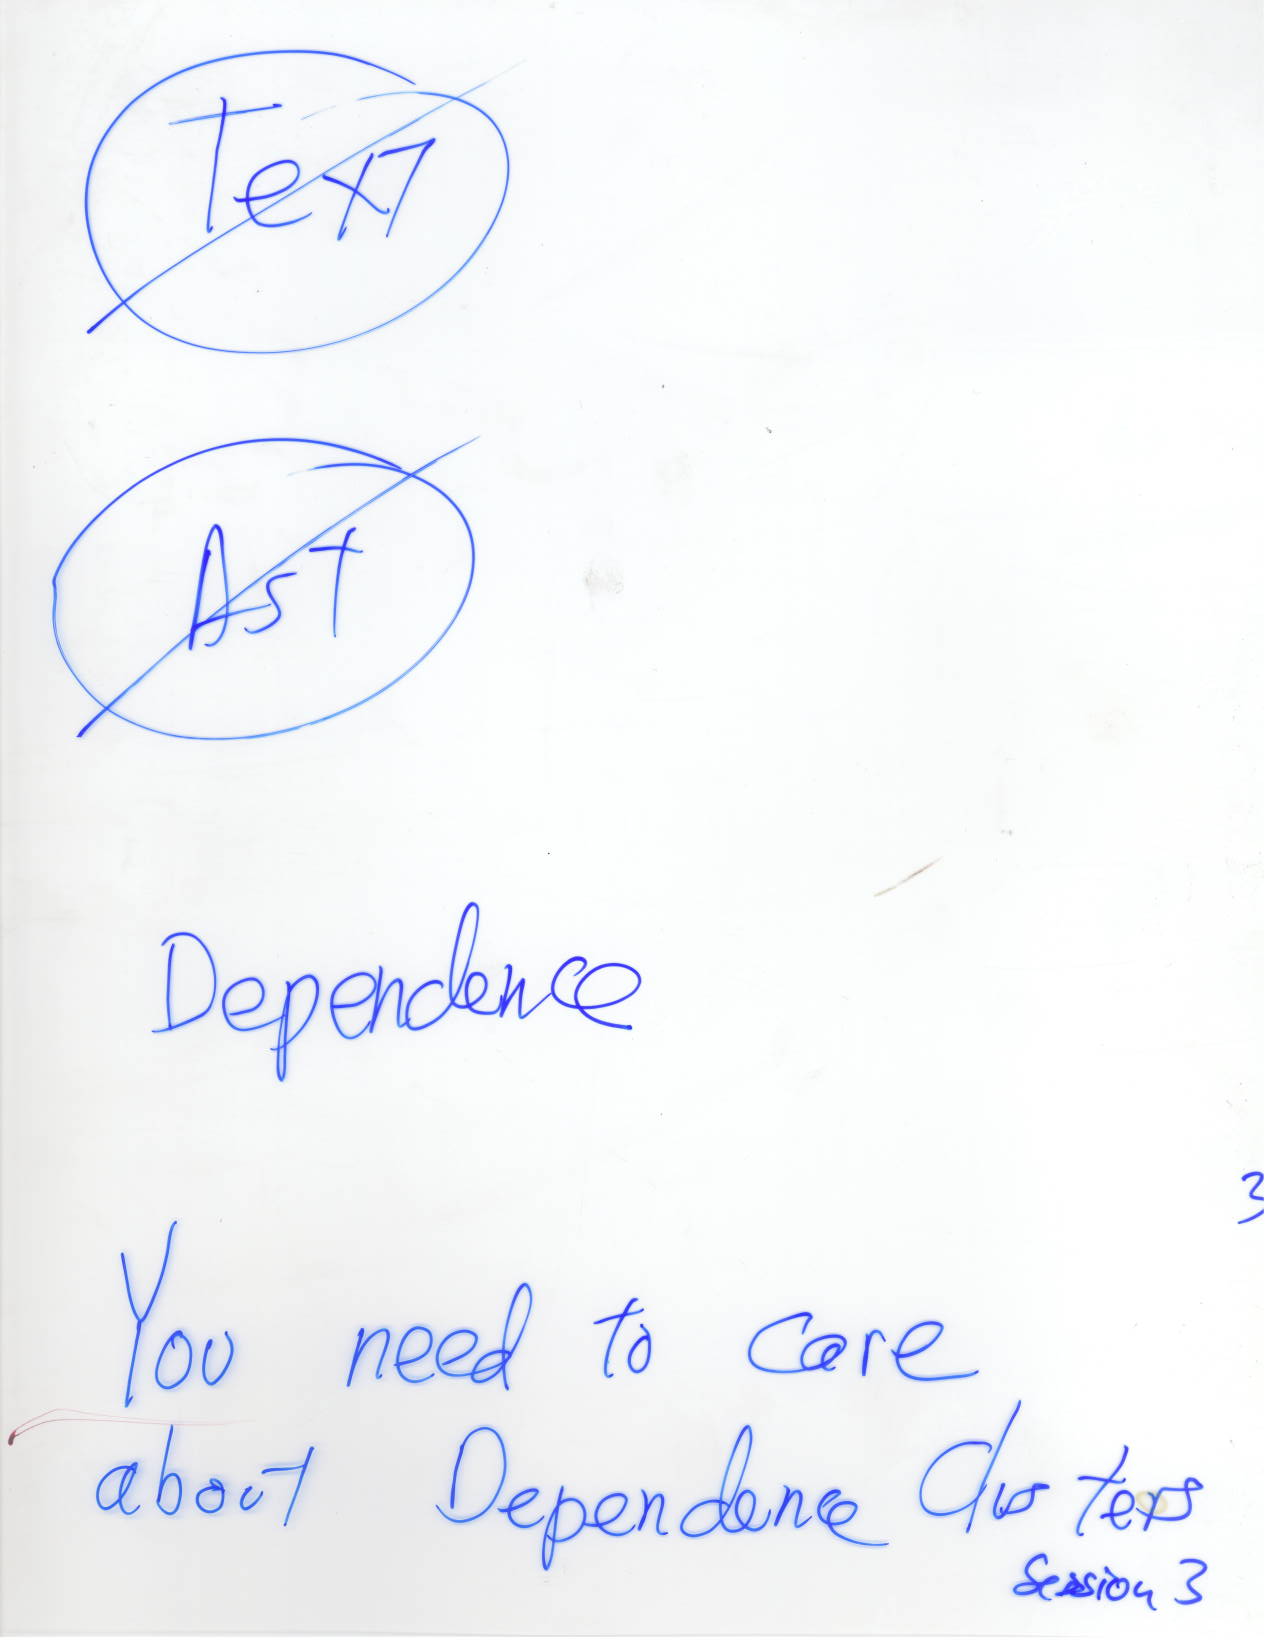 Text
AsT
Dependence
3
You need to care
about Dependence Clusters
Session 3